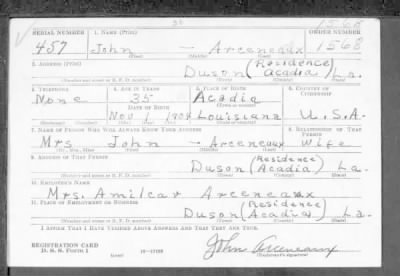 1568
SERIAL NUMBER 1. NAME (Print) ORDER NUMBER
457 John — Arceneaux 1568
(First) (Middle) (Last)
2. ADDRESS (Print)
(Residence
Duson (Acadia) La.
(Number and street or R. F. D. number) (Town) (County) (State)
3. TELEPHONE 4. AGE IN YEARS 5. PLACE OF BIRTH 6. COUNTRY OF CITIZENSHIP
None 35 Acadia
DATE OF BIRTH
Nov 1 1904 Louisiana U.S.A.
(Exchange) (Number) (Mo.) (Day) (Yr.) (State or country)
7. NAME OF PERSON WHO WILL ALWAYS KNOW YOUR ADDRESS 8. RELATIONSHIP OF THAT PERSON
Mrs John — Arceneaux Wife
(Mr., Mrs., Miss) (First) (Middle) (Last)
9. ADDRESS OF THAT PERSON
(Residence
Duson (Acadia) La.
(Number and street or R. F. D. number) (Town) (County) (State)
10. EMPLOYER'S NAME
Mrs. Amilcar Arceneaux
11. PLACE OF EMPLOYMENT OR BUSINESS
(Residence)
Duson (Acadia) La.
(Number and street or R. F. D. number) (Town) (County) (State)
I AFFIRM THAT I HAVE VERIFIED ABOVE ANSWERS AND THAT THEY ARE TRUE.
REGISTRATION CARD
D. S. S. FORM 1
(over)
John Arceneaux
(Registrant's signature)